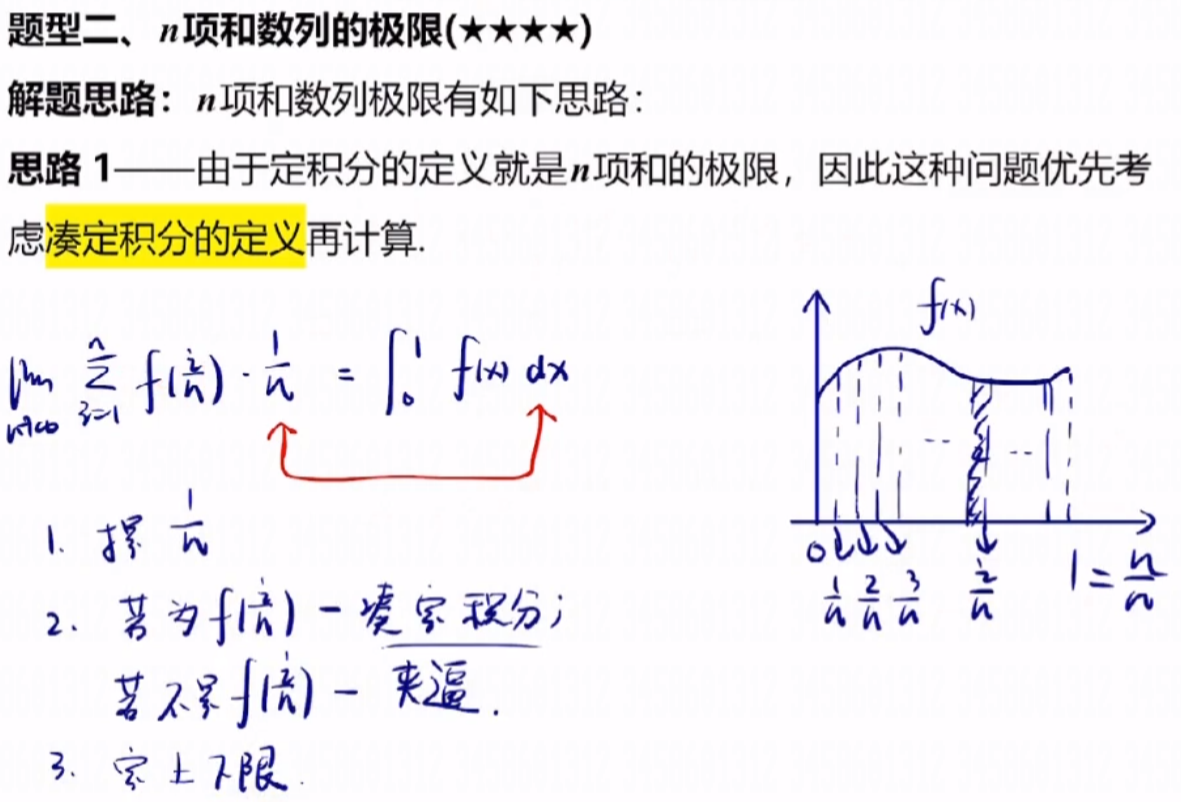 题型二、n项和数列的极限(★★★★)
解题思路：n项和数列极限有如下思路：
思路 1——由于定积分的定义就是n项和的极限，因此这种问题优先考
虑凑定积分的定义再计算.
lim n→∞ Σ i=1 n f(i/n) · 1/n = ∫₀¹ f(x) dx
1. 提 1/n
2. 若为 f(i/n) - 凑定积分;
若不是 f(i/n) - 夹逼.
3. 定上下限.
f(x)
0 1/n 2/n 3/n i/n 1 = n/n